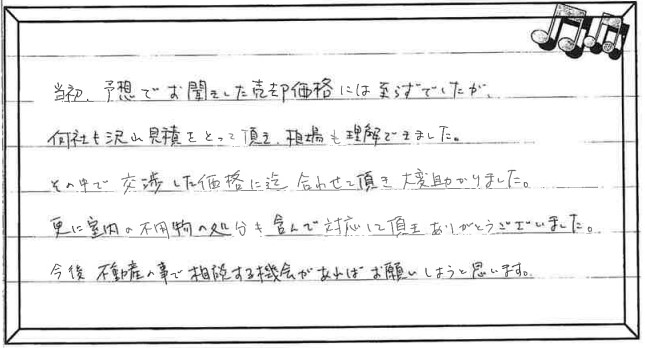 当初、予想でお聞きした売却価格には至らずでしたが、
何社も沢山見積をとって頂き、相場も理解できました。
その中で交渉した価格に迄合わせて頂き大変助かりました。
更に室内の不用物の処分も含んで対応して頂きありがとうございました。
今後不動産の事で相談する機会があればお願いしようと思います。